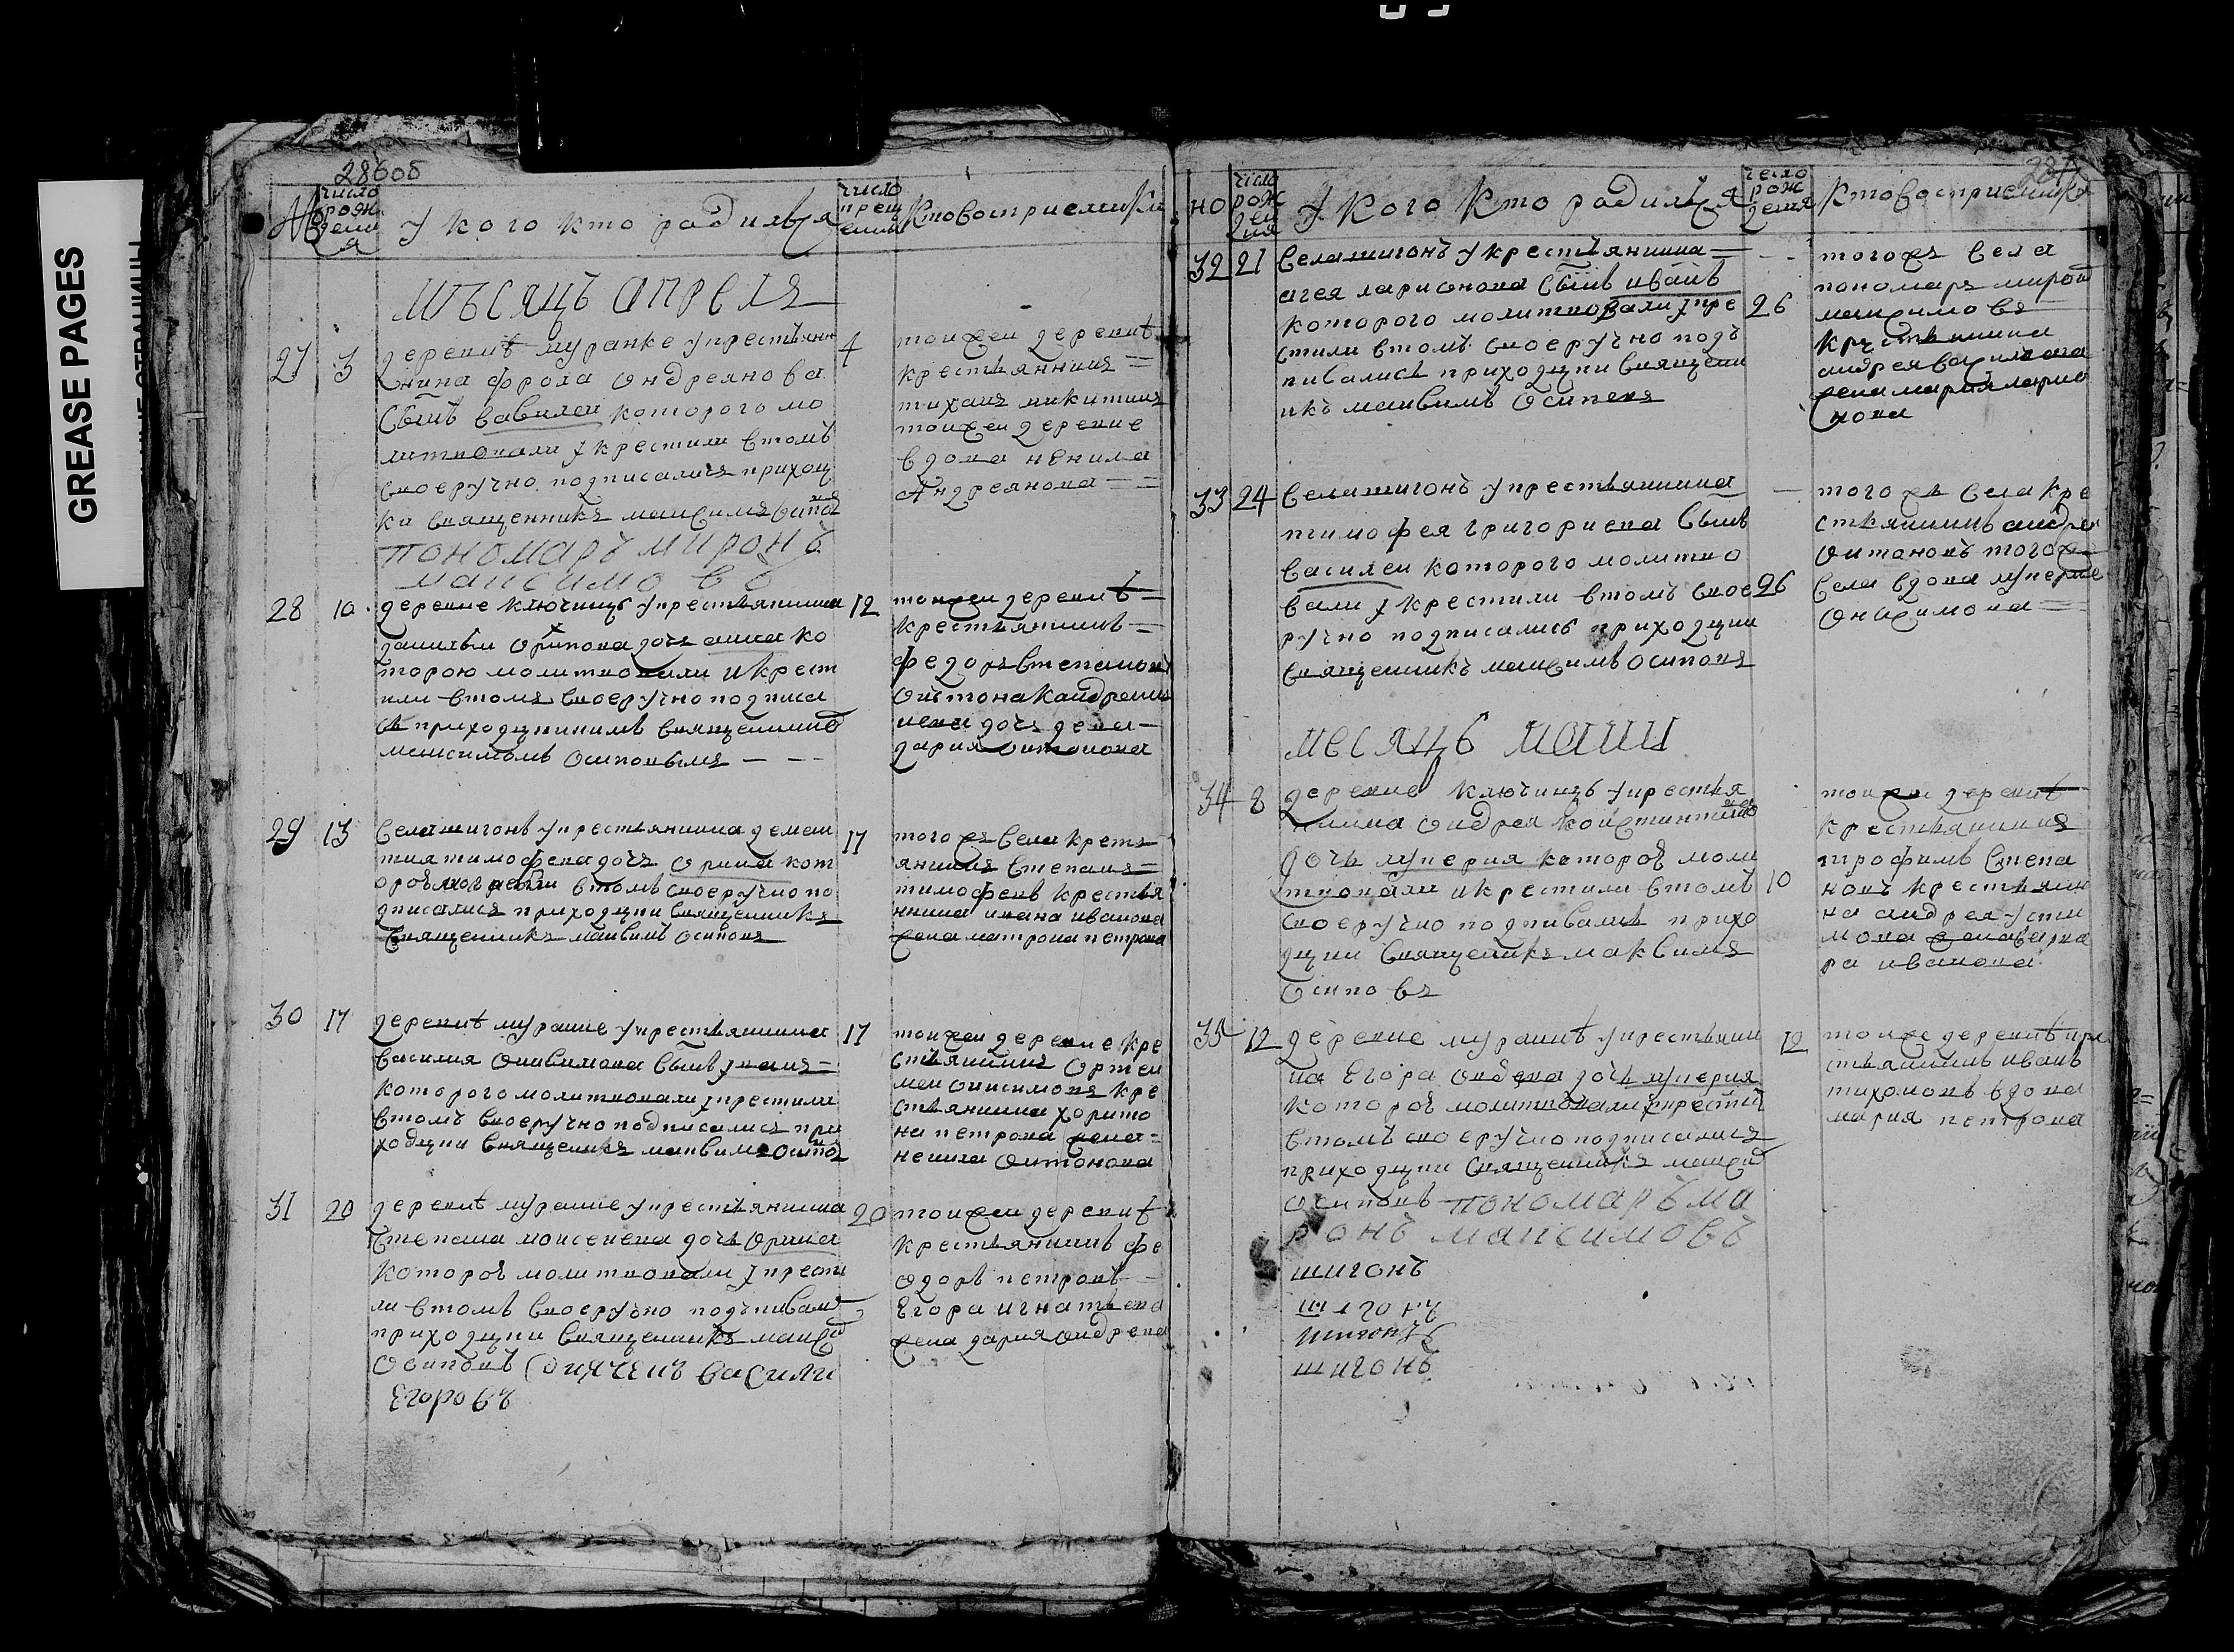 GREASE PAGES
286об
No
число рождения
У кого кто родился
число крещения
Кто восприемники
мъсяцъ апреля
27 3 деревнѣ муранке у крестьян 4
нина фрола ондреянова
сынъ василей которого мо
литвовали ӱ крестили втомъ
своеручно подписалися приход
ки священникъ максимъ осипов
пономаръ миронъ
максимовъ
тоижеи деревнѣ
крестьянинъ =
тиханъ никитинъ
тоижеи деревне
вдова ненила
Андреянова = =
28 10 деревне ключищъ у крестьянина 12
данилы о дочь анна ко
торою молитвовали и крест
или втомъ своеручно подписа
сь приходцкимъ священнико
максимомъ осиповымъ - - -
тоижеи деревнѣ =
крестьянинъ =
федоръ степановъ
дочь дева -
дария онтонова
29 13 села шигонъ у крестьянина демен 17
тия тимофеева дочь орина кот
оров втомъ своеручно по
дписалися приходцки священникъ
священникъ максимъ осиповъ
того жъ села кресть
янинъ степанъ =
тимофеевъ крестья
нина ивана иванова
жена матрона петрова
30 17 деревнѣ муранке у крестьянина 17
василия онисимова сынъ ӱванъ =
которого молитвовали ӱ крестили
втомъ своеручно подписалися при
ходцки священникъ максимъ осипов
тоижеи деревне кре
стьянинъ ортем
меи онисимовъ кре
стьянина харито
на петрова жена =
ненила онтонова
31 20 деревнѣ муранке у крестьянина 20
степана моисеева дочь орина
которов молитвовали ӱ крести
ли втомъ своеручно подписалися
приходцки священникъ максим
осиповъ василеи
егоровъ
тоижеи деревнѣ
крестьянинъ фе
одоръ петровъ
егора игнатьева
жена дария ондреева
но
число рождения
У кого кто родился
число рождения
Кто восприемники
32 21 села шигонъ у крестьянина = - -
агея ларионова сынъ иванъ
которого молитвовали ӱ кре 26
стили втомъ своеручно подъ
писались приходцки священ
икъ максимъ осиповъ
того жъ села
пономаръ мирон
максимовъ
крестьянина
андрея василева
жена мария ларио
нова
33 24 села шигонъ у крестьянина -
тимофея григориева сынъ
василеи которого молитво
вали ӱ крестили втомъ свое 26
ручно подписались приходцки
священникъ максимъ осиповъ
того жъ села кре
стьянинъ андреи
онтоновъ того ж
села вдова лукерие
онисимова =
месяцъ маии
34 8 деревне ключищъ у крестья
нина ондрея констинтинов
дочь лукерия которов моли
твовали и крестили втомъ 10
своеручно подписались прихо
дцки священникъ максимъ
осиповъ
тоижеи деревнѣ
крестьянинъ
трофимъ степа
новъ крестьянин
на андрея усти
мова жена варва
ра иванова
35 12 деревне муранкѣ у крестьяни 12
на егора дочь лукерия
которов молитвовали ӱ крестил
втомъ своеручно подписалися
приходцки священникъ максим
осиповъ пономаръ ми
ронъ максимовъ
тоиже деревнѣ кре
стьянинъ иванъ
тихоновъ вдова
мария петрова
шигонъ
шигонъ
шигонъ
шигонъ